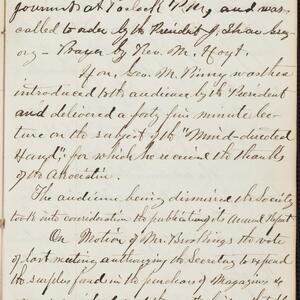 journment at 7 o'clock P.M., and was
called to order by the President J. Shaw Greg-
ory — Prayer by Rev. Mr. Hoyt.
Hon. Geo. M. Pinny was then
introduced to the audience by the President
and delivered a forty five minute lec-
ture on the subject of the "Mind-directed
Hand", for which he received the thanks
of the Association.
The audience being dismissed the Society
took into consideration the publication of its Annual Report
On Motion of Mr. Brookings the vote
of last meeting authorizing the Secretary to expend
the surplus fund in the purchase of Magazines &